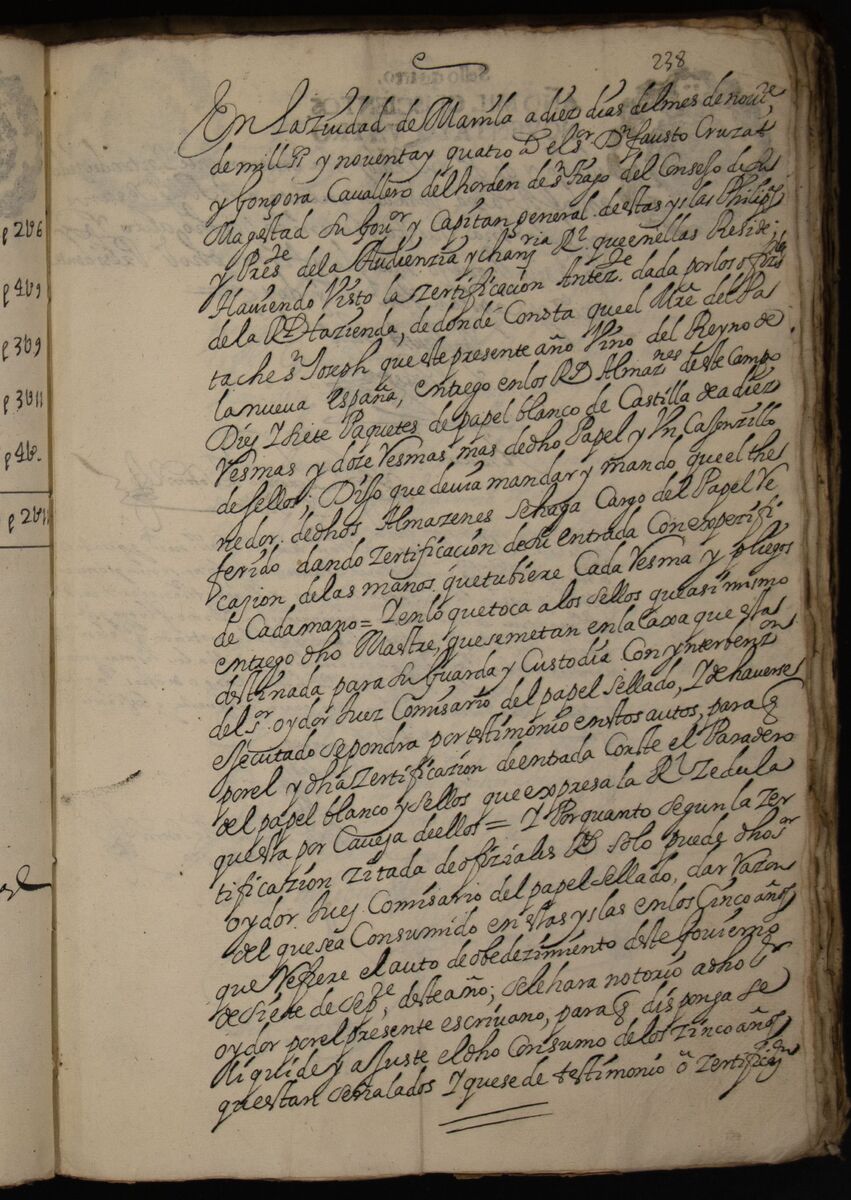 238
En la ziudad de Manila a diez dias del mes de nouᵉ
de mill y noventa y quatro el sʳ Dⁿ fausto Cruzat
y Gongora Cavallero del horden de sⁿtiago del Consejo de su
Magestad su Gouʳ y Capitan general destas yslas Philipˢ
y Presᵗᵉ de la Audienzia y chanzʳⁱᵃ Rˡ que en ellas Reside;
Haviendo Visto la zertificacion Antezᵗᵉ dada por los ofizˡᵉˢ
de la Rˡ Hazienda, de donde Consta que el Mʳᵉ del Pa
tache sⁿ Joseph que este presente año Vino del Reyno de
la nueva España, entrego en los Rˢ Almazⁿᵉˢ deste Campo
Diez y siete Paquetes de papel blanco de Castilla de a diez
Resmas y doze Resmas mas de dho Papel y Vn Caxonzillo
de sellos; Dijo que devia mandar y mando que el the
nedor de dhos Almazenes se haga Cargo del Papel Re
ferido dando zertificacion de su entrada Con expezifi
cazion de las manos que tubiere Cada Resma y pliegos
de Cada mano = Y en lo que toca a los sellos que asimismo
entrego dho Mastre, que se metan en la caxa que esta
destinada para su Guarda y Custodia Con yntervenzᵒⁿ
del sʳ oydor Juez Comisario del papel sellado, Y de haverse
ejecutado se pondra por testimonio en estos autos, para q̃
por el y dha zertificazion de entrada Conste el Paradero
del papel blanco y sellos que expresa la Rˡ Zedula
que esta por Caveza de ellos = Y Por quanto segun la zer
tificazion zitada de ofiziales Rˢ solo puede dho sʳ
oydor Juez Comisario del papel sellado, dar razon
del que se a Consumido en estas yslas en los Cinco años
que Refiere el auto de obedezimiento deste Govierno
de siete de sepᵉ deste año; se le hara notorio a dho sʳ
oydor por el presente escrivano, para q̃ disponga se
liquide y ajuste el dho Consumo de los zinco años
que estan señalados Y que se de testimonio o zertificᵒⁿ